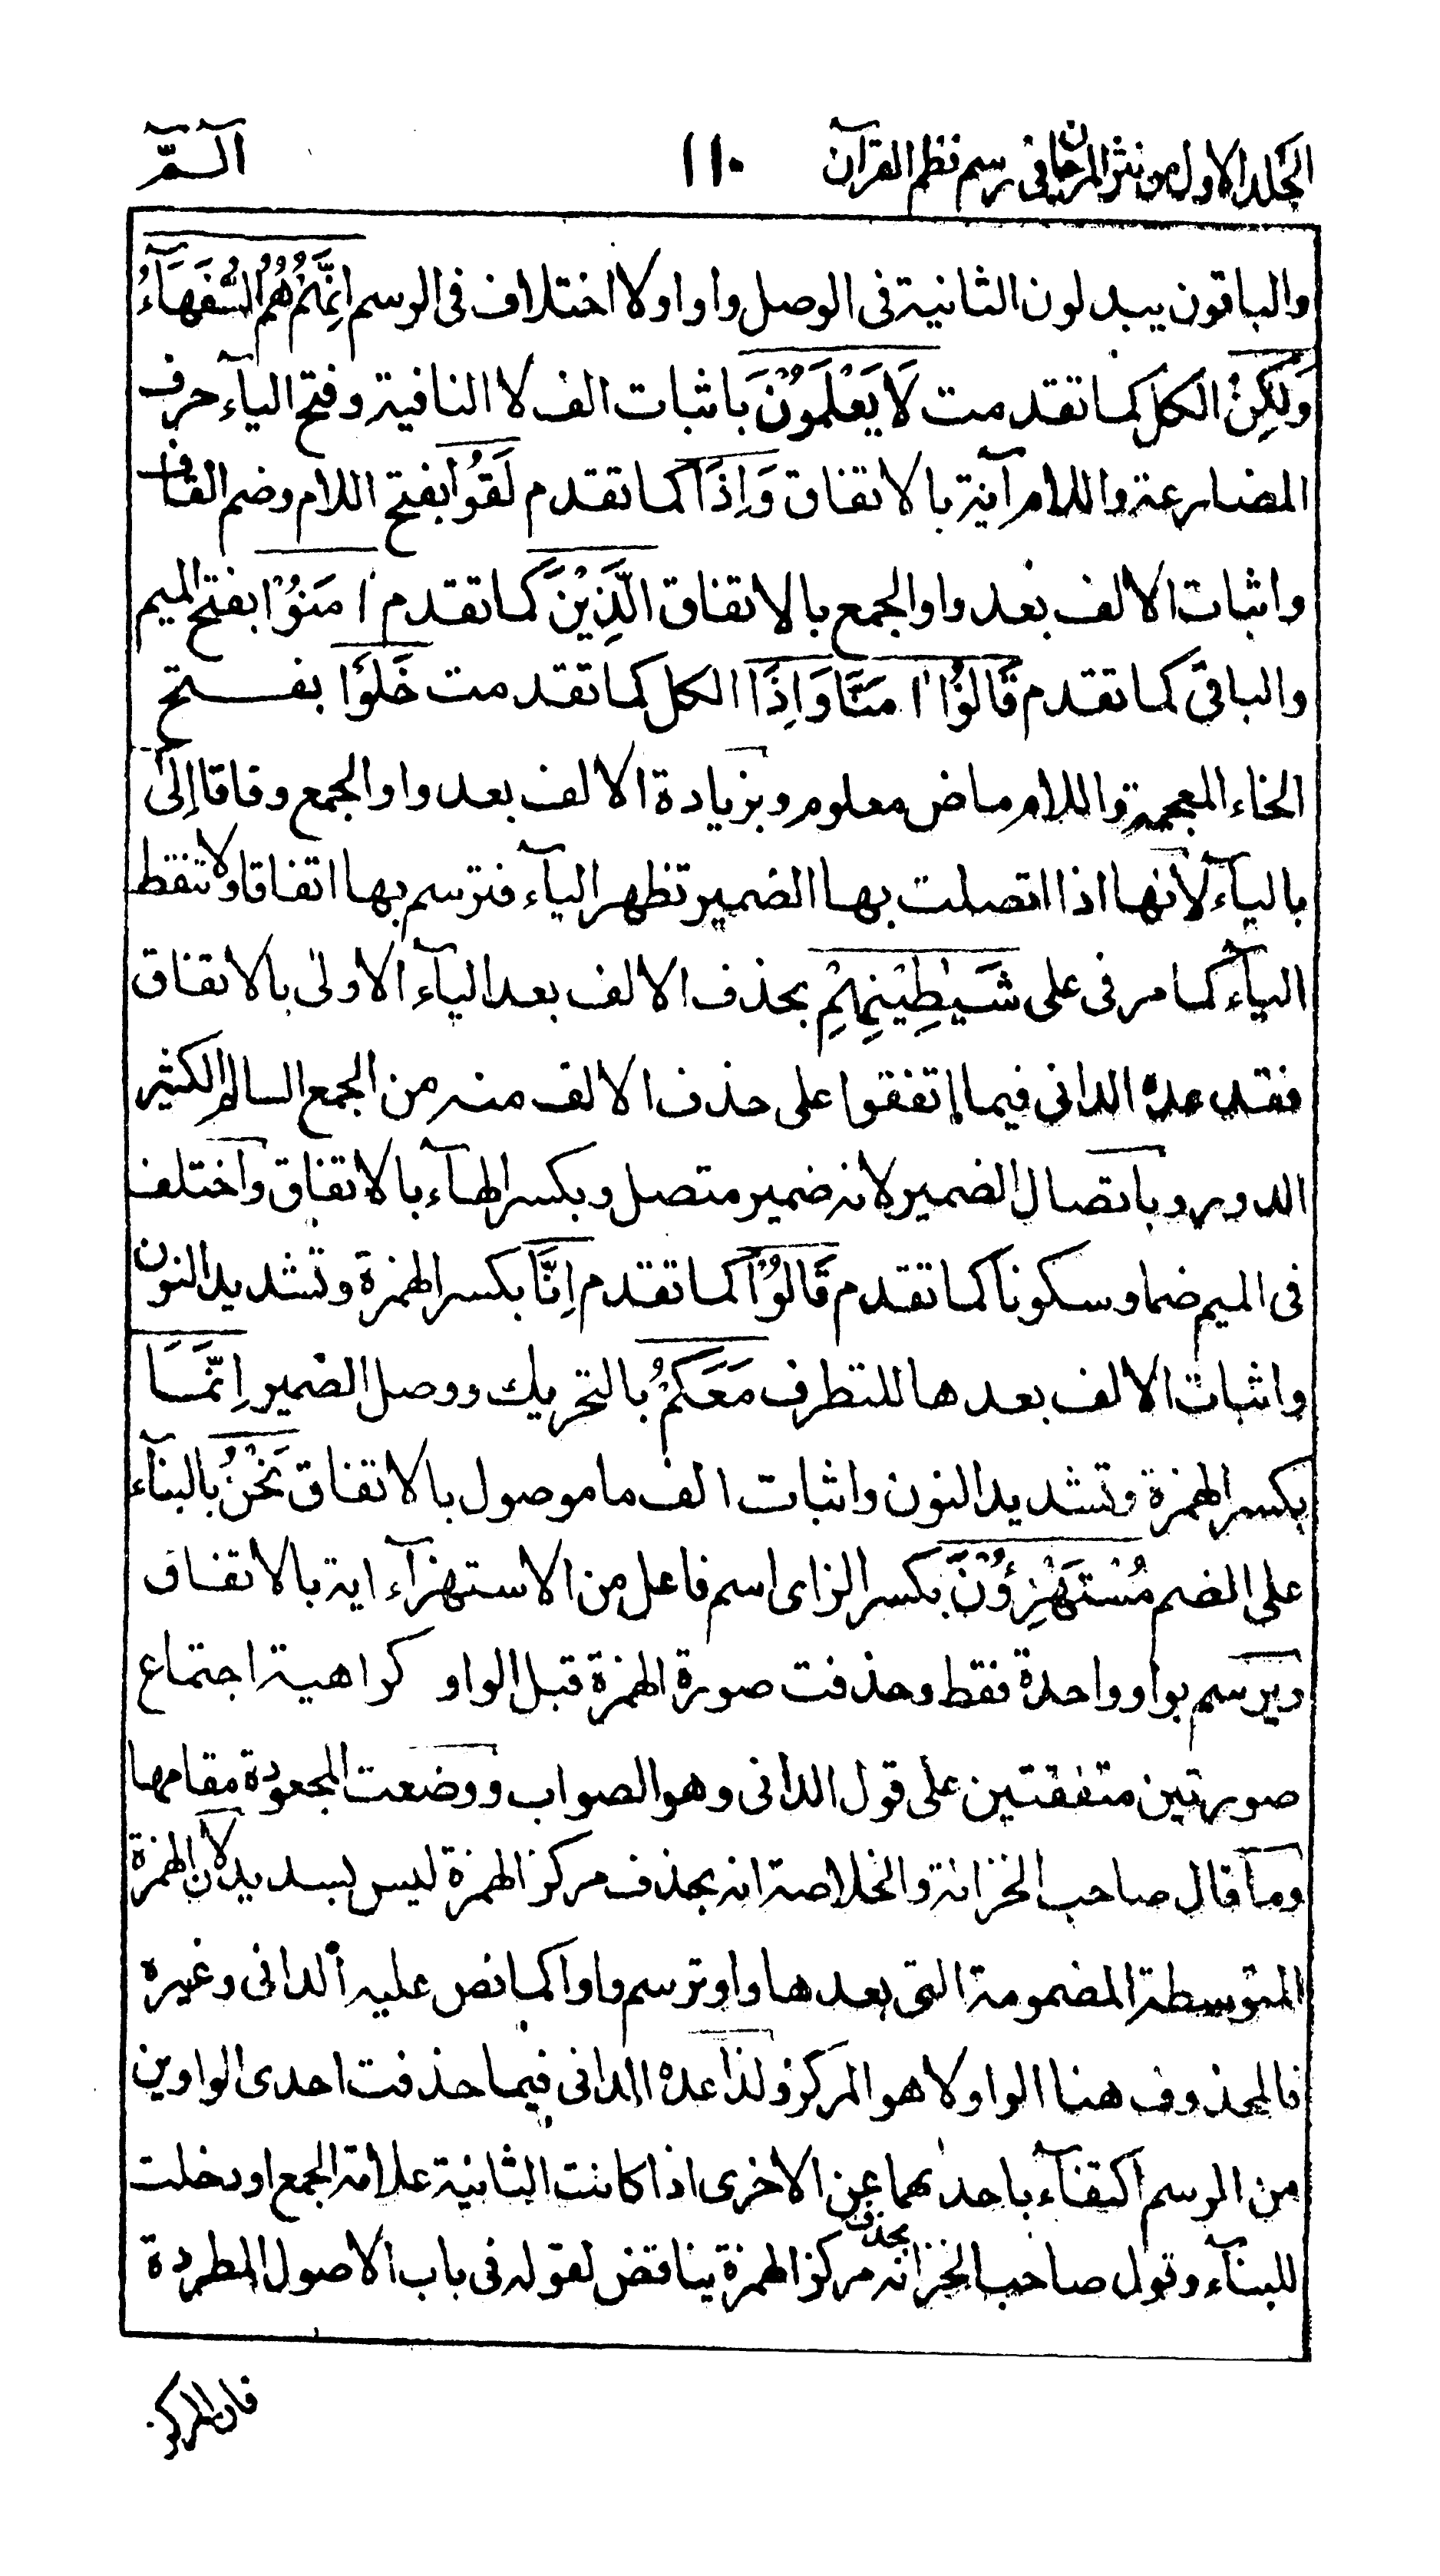 المجلد الاول من نثر المرجان فى رسم نظم القرآن
١١٠
آلـمّ
والباقون يبدلون الثانية فى الوصل واوا ولا اختلاف فى الرسم اِنَّهُمْ هُمُ السُّفَهَآءُ
وَلٰكِنْ الكل كما تقدمت لَا يَعْلَمُوْنَ باثبات الف لا النافية وفتح اليآء حرف
المضارعة واللام آية بالاتفاق وَاِذَا كما تقدم لَقُوا بفتح اللام وضم القاف
واثبات الالف بعد واو الجمع بالاتفاق الَّذِيْنَ كما تقدم اٰمَنُوْا بفتح الميم
والباقى كما تقدم قَالُوْٓا اٰمَنَّا وَاِذَا الكل كما تقدمت خَلَوْا بفــتح
الخاء المعجمة واللام ماض معلوم وبزيادة الالف بعد واو الجمع وفاقا اِلٰى
باليآء لأنها اذا اتصلت بها الضمير تظهر اليآء فترسم بها اتفاقا ولا تنقط
اليآء كما مر فى على شَيٰطِيْنِهِمْ بحذف الالف بعد اليآء الاولى بالاتفاق
فقد عده الدانى فيما اتفقوا على حذف الالف منه من الجمع السالم الكثير
الدور وباتصال الضمير لانه ضمير متصل وبكسر الهآء بالاتفاق واختلف
فى الميم ضما وسكونا كما تقدم قَالُوْٓا كما تقدم اِنَّا بكسر الهمزة وتشديد النون
واثبات الالف بعدها للتطرف مَعَكُمْ بالتحريك ووصل الضمير اِنَّمَــا
بكسر الهمزة وتشديد النون واثبات الف ما موصول بالاتفاق نَحْنُ بالبنآء
على الضم مُسْتَهْزِءُوْنَ بكسر الزاى اسم فاعل من الاستهزآء اية بالاتفاق
ويرسم بواو واحدة فقط وحذفت صورة الهمزة قبل الواو كراهية اجتماع
صورتين متفقتين على قول الدانى وهو الصواب ووضعت المجعودة مقامها
وما قال صاحب الخزانة والخلاصة انه بحذف مركز الهمزة ليس بسديد لان الهمزة
المتوسطة المضمومة التى بعدها واو ترسم واوا كما نص عليه الدانى وغيره
فالمحذوف هنا الواو لا هو المركز ولذا عده الدانى فيما حذفت احدى الواوين
من الرسم اكتفآء باحدٰهما عن الاخرى اذا كانت الثانية علامة الجمع او دخلت
للبنآء وقول صاحب الخزانة بحذف مركز الهمزة يناقض لقوله فى باب الاصول المطردة
فان المركز